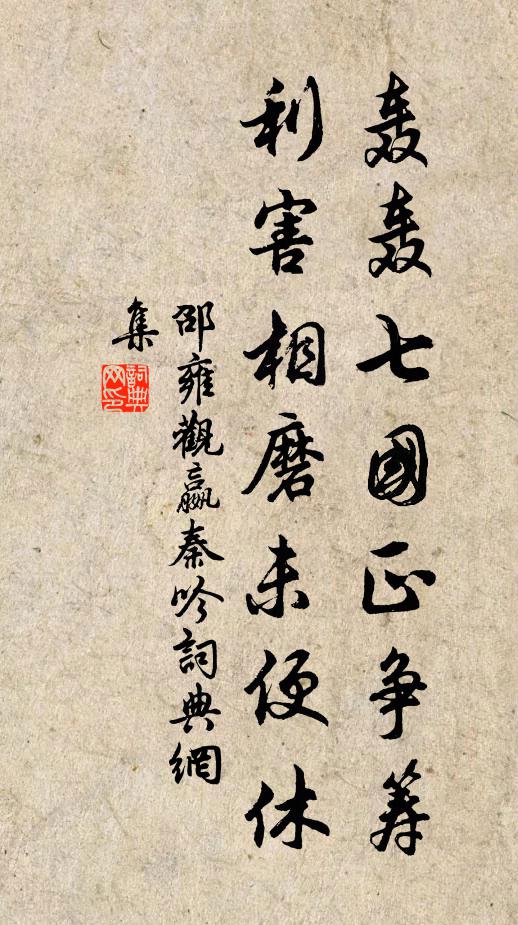 轰轰七國正争筹
利害相磨未便休
邵雍觀嬴秦吟詞典網
集
詞典
网印